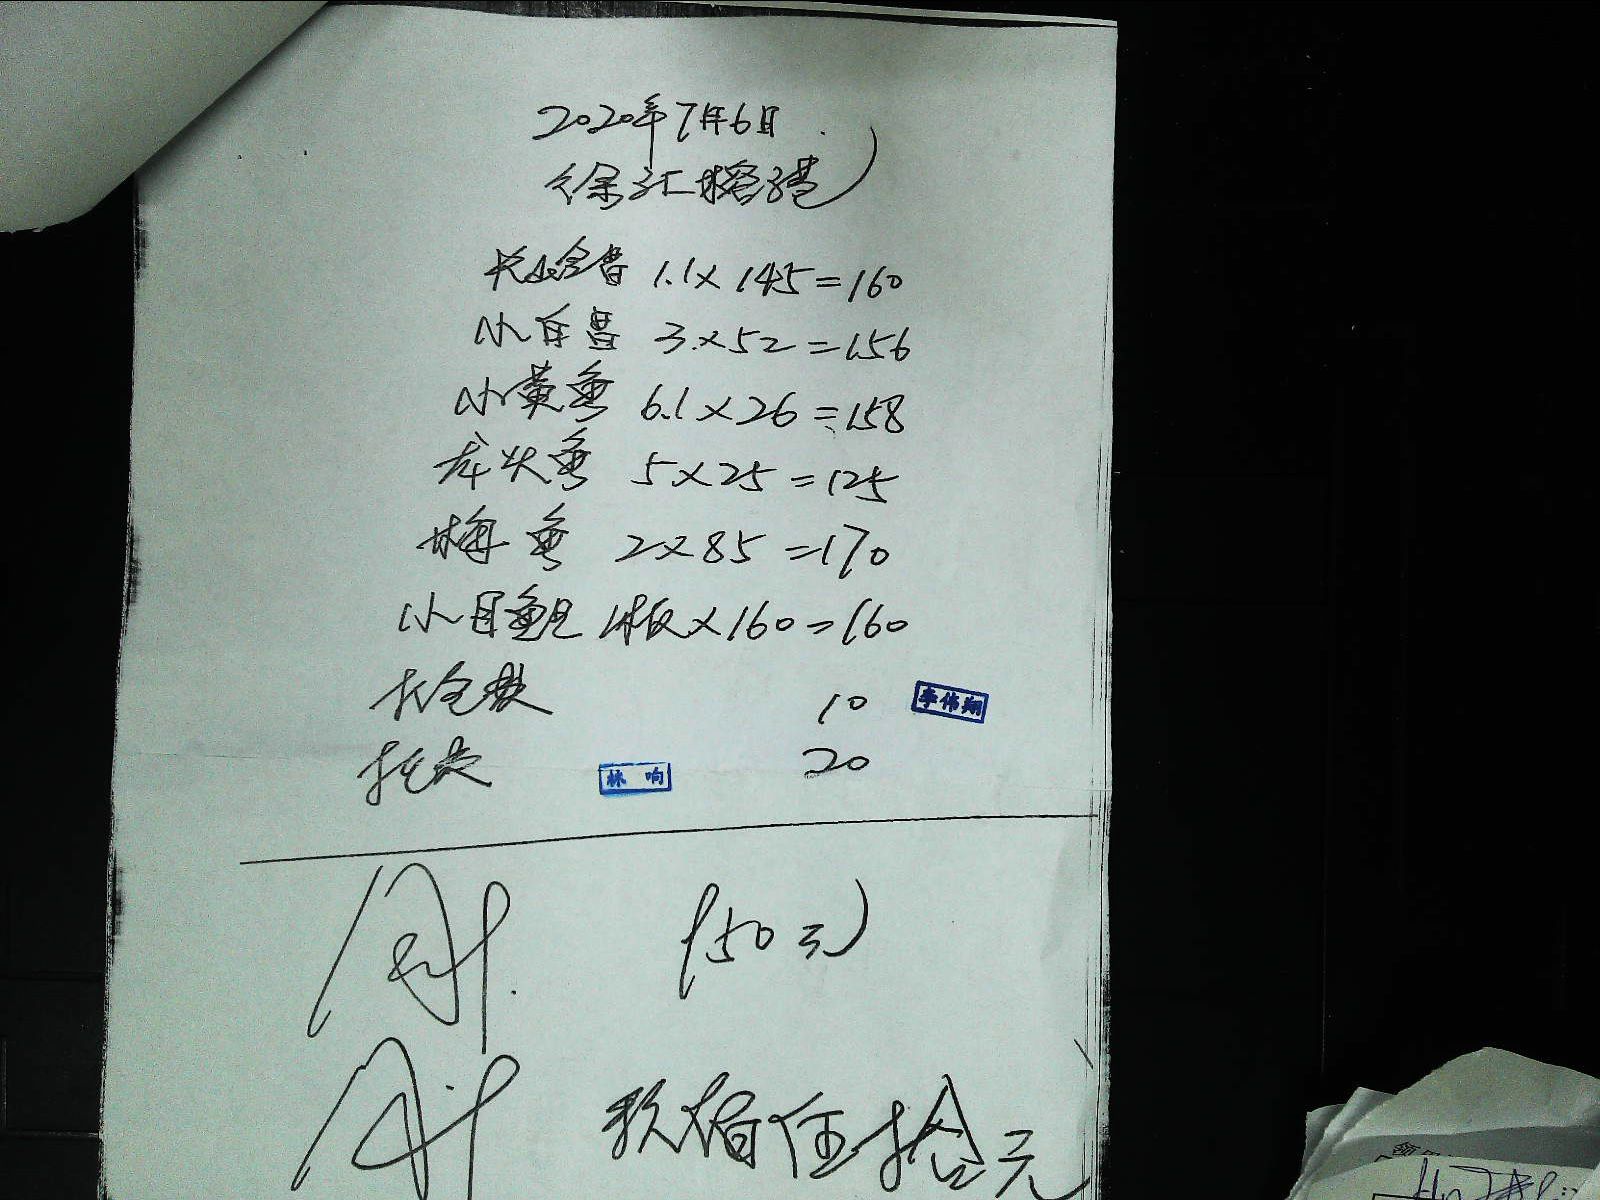 2020年7月6日
徐汇榕港
1.1×145=160
小白鲳 3×52=156
小黄鱼 6.1×26=158
龙头鱼 5×25=125
梅鱼 2×85=170
小目鱼 1板×160=160
打包费 10
李伟翔
托费 20
林响
950元
玖佰伍拾元